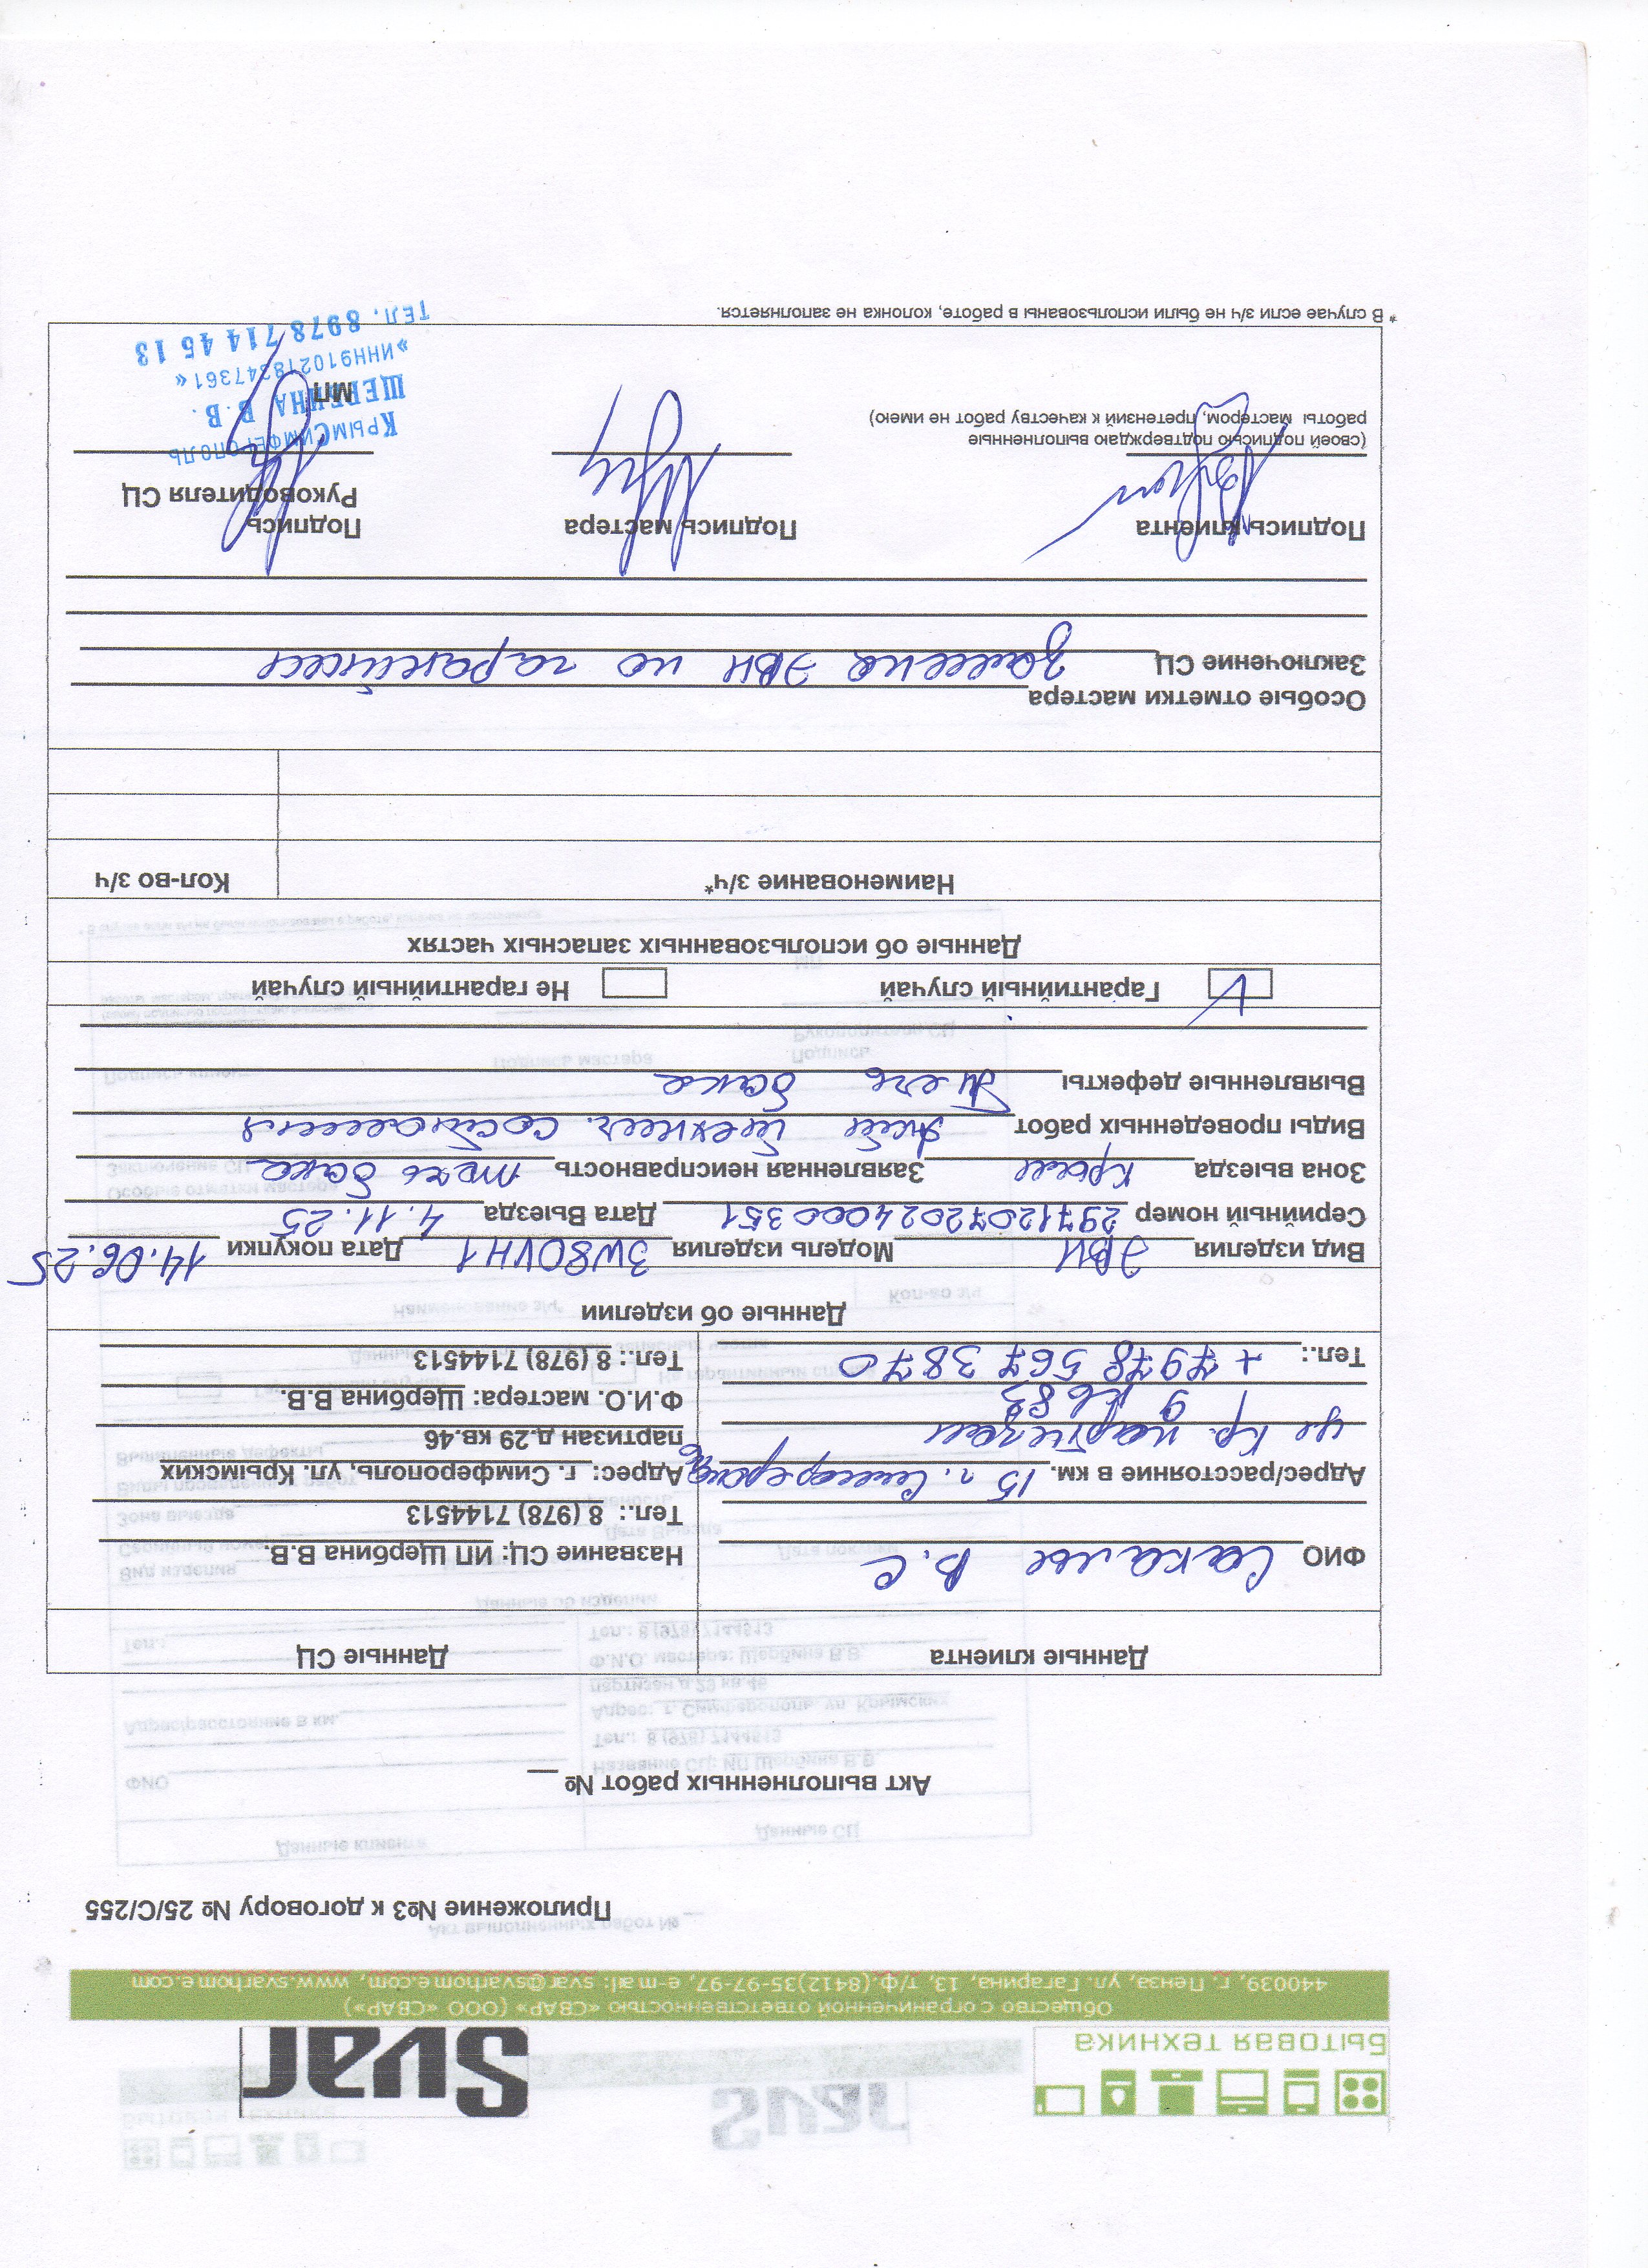 БЫТОВАЯ ТЕХНИКА
Svar
Общество с ограниченной ответственностью «СВАР» (ООО «СВАР»)
440039, г. Пенза, ул. Гагарина, 13, т/ф.(8412)35-97-97, e-mail: svar@svarhome.com, www.svarhome.com
Приложение №3 к договору № 25/С/255
Акт выполненных работ № __
Данные клиента
ФИО В.С
Адрес/расстояние в км. 15 г. Симферополь
ул Кр. партизан
9 кв 83
Тел.: +7978 567 3870
Данные СЦ
Название СЦ: ИП Щербина В.В.
Тел.: 8 (978) 7144513
Адрес: г. Симферополь, ул. Крымских
партизан д.29 кв.46
Ф.И.О. мастера: Щербина В.В.
Тел.: 8 (978) 7144513
Данные об изделии
Вид изделия ЭВН Модель изделия 3W80VH1 Дата покупки 14.06.25
Серийный номер 29712072024000351 Дата Выезда 4.11.25
Зона выезда Крым Заявленная неисправность течь бака
Виды проведенных работ Акт технич. состояния
Выявленные дефекты Течь бака
Гарантийный случай V Не гарантийный случай
Данные об использованных запасных частях
Наименование з/ч* Кол-во з/ч
Особые отметки мастера
Заключение СЦ замена ЭВН по гарантии
Подпись клиента
(своей подписью подтверждаю выполненные
работы мастером, претензий к качеству работ не имею)
Подпись мастера
Подпись
Руководителя СЦ
МП
КРЫМСИМФЕРОПОЛЬ
ЩЕРБИНА В.В.
»ИНН910218347361«
ТЕЛ. 8978 714 45 13
* В случае если з/ч не были использованы в работе, колонка не заполняется.